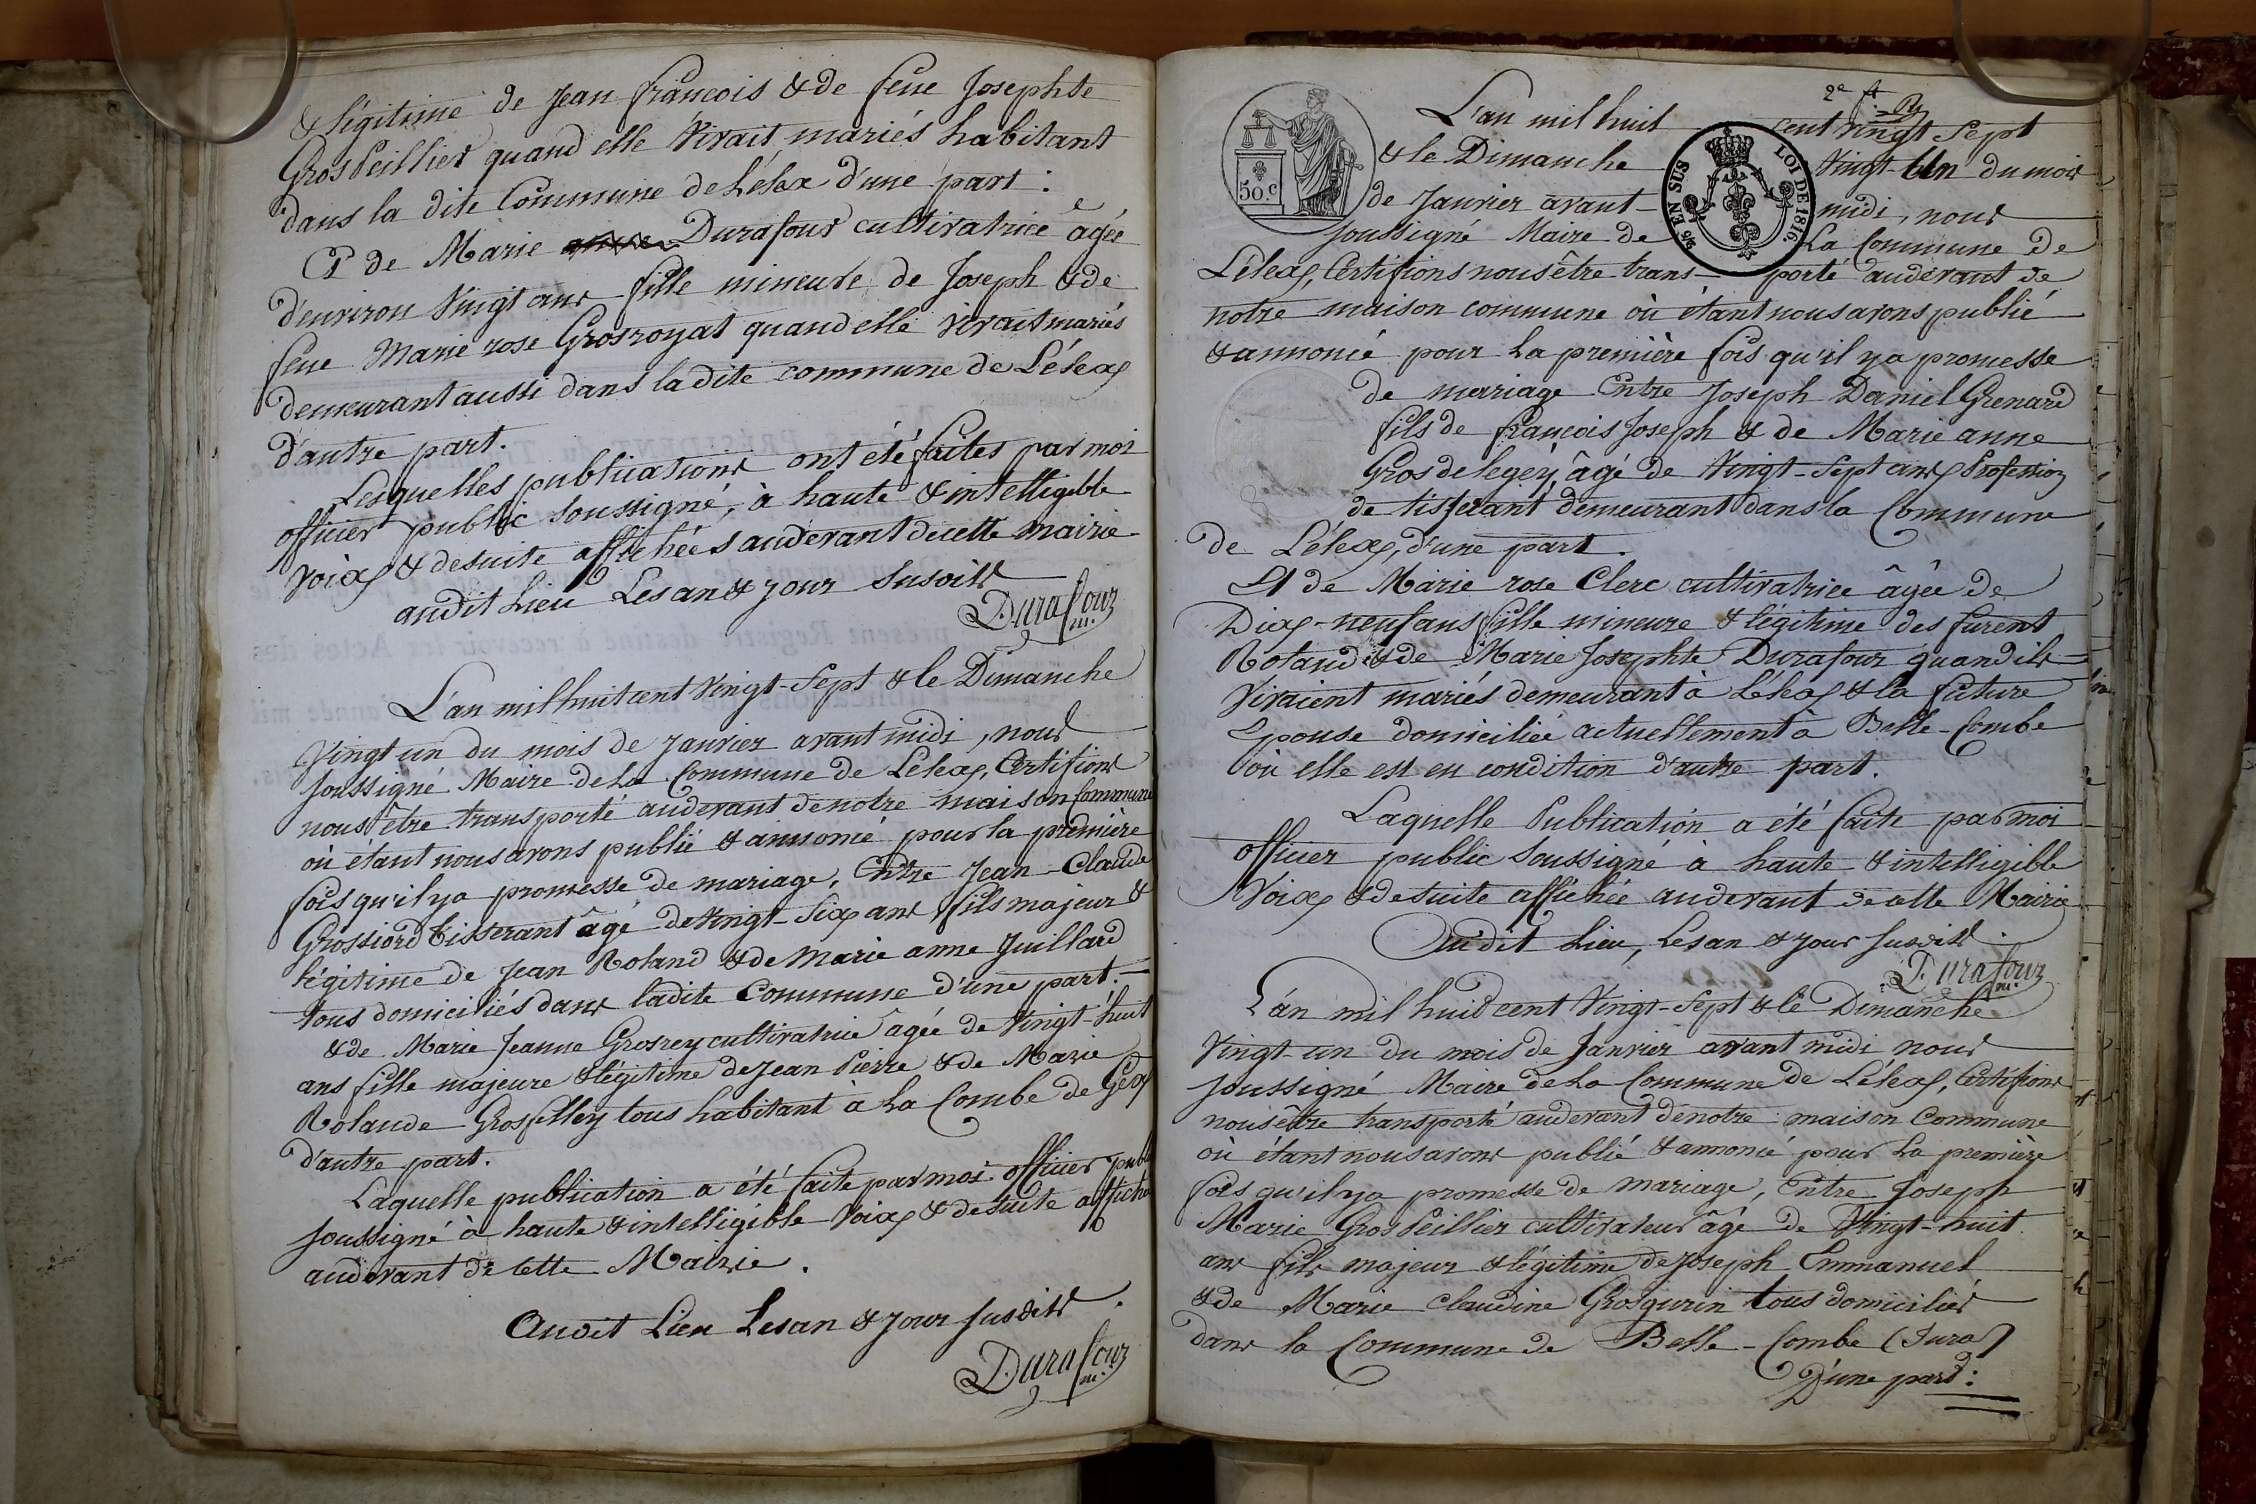 & légitime de Jean françois & de feue Josephte
GrosPeillier quand elle Vivait mariés habitant
dans la dite Commune de Lélex d'une part :
Et de Marie Durafour cultivatrice âgée
d'environ Vingt ans fille mineure de Joseph & de
feue Marie rose Grosroyat quand elle vivait mariés
demeurant aussi dans la dite commune de Lélex
d'autre part.
Lesquelles publications ont été faites par moi
officier public soussigné, à haute & intelligible
Voix & de suite affichées audevant de cette mairie
audit Lieu Les an & jour susdits
Durafour
m.
L'an mil huit cent Vingt-Sept & le Dimanche
Vingt un du mois de Janvier avant midi, nous
soussigné Maire de La Commune de Lélex, Certifions
nous être transporté audevant de notre maison Commune
où étant nous avons publié & annoncé pour la première
fois qu'il ya promesse de mariage, Entre Jean-Claude
Grossiord tisserant âgé de Vingt-Six ans fils majeur &
légitime de Jean Roland & de Marie anne Juillard
tous domiciliés dans ladite Commune d'une part.
& de Marie Jeanne Grosrey cultivatrice âgée de Vingt-huit
ans fille majeure & légitime de Jean Pierre & de Marie
Rolande Grosfilley tous habitant à La Combe de Gex
d'autre part.
Laquelle publication a été faite par moi officier publ
soussigné à haute & intelligible Voix & de suite affiché
audevant de cette Mairie.
Audit Lieu Les an & jour susdits.
Durafour
m.
2e f.
50.c
5/6 EN SUS
LOI DE 1816.
L'an mil huit cent vingt Sept
& le Dimanche Vingt-Un du mois
de Janvier avant-midi, nous
soussigné Maire de La Commune de
Lélex, Certifions nous être trans-porté audevant de
notre maison commune où étant nous avons publié
& annoncé pour La première fois qu'il ya promesse
de mariage Entre Joseph Daniel Grenard
fils de françois Joseph & de Marie anne
Gros de legey, âgé de Vingt-Sept ans, Profession
de tisserant demeurant dans la Commune
de Lélex, d'une part.
Et de Marie rose Clerc cultivatrice âgée de
Dix-neuf ans fille mineure & légitime des furent
Roland & de Marie Josephte Durafour quand ils
Vivaient mariés demeurant à Lélex & la future
Epouse domiciliée actuellement à Belle-Combe
où elle est en condition d'autre part.
Laquelle Publication a été faite par moi
officier public soussigné à haute & intelligible
Voix & de suite affichée audevant de cette Mairie
Au dit Lieu, Les an & jour susdits.
Durafour
m.
L'an mil huit cent Vingt-Sept & le Dimanche
Vingt-un du mois de Janvier avant midi nous
soussigné Maire de La Commune de Lélex, Certifions
nous être transporté audevant de notre maison commune
où étant nous avons publié & annoncé pour La première
fois qu'il ya promesse de mariage, Entre Joseph
Marie GrosPeillier cultivateur âgé de Vingt-huit
ans fils majeur & légitime de Joseph Emmanuel
& de Marie claudine Grosgurin tous domiciliés
dans la Commune de Belle-Combe (Jura)
D'une part :